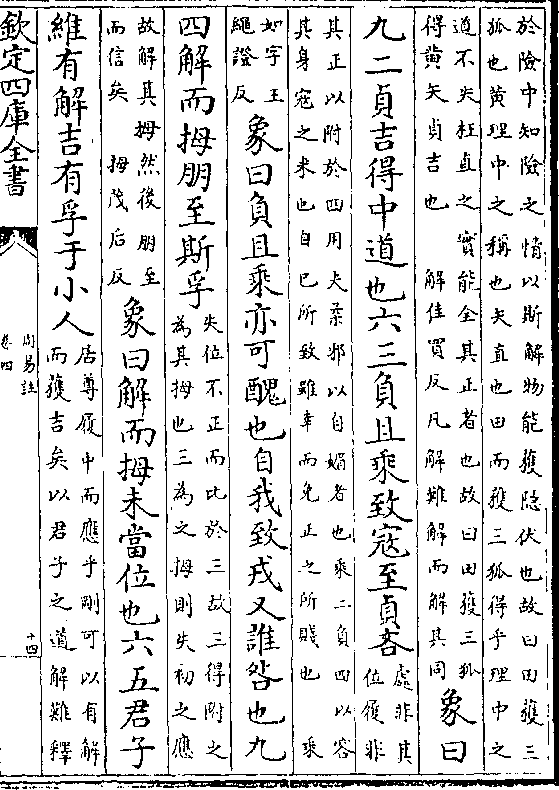 於險中知險之情以斯解物能獲隱伏也故曰田獲三
狐也黄理中之稱也矢直也田而獲三狐得乎理中之
道不失枉直之實能全其正者也故曰田獲三狐
得黄矢貞吉也　解佳買反凡解難解而解其同
象曰
九二貞吉得中道也六三負且乘致寇至貞吝
處非其
位履非
其正以附於四用夫柔邪以自媚者也乘二負四以容
其身寇之來也自己所致雖幸而免正之所賤也　乘
如字王
繩證反
象曰負且乘亦可醜也自我致戎又誰咎也九
四解而拇朋至斯孚
失位不正而比於三故三得附之
為其拇也三為之拇則失初之應
故解其拇然後朋至
而信矣　拇茂后反
象曰解而拇未當位也六五君子
維有解吉有孚于小人
居尊履中而應乎剛可以有解
而獲吉矣以君子之道解難釋
欽定四庫全書
周易註
卷四
十四